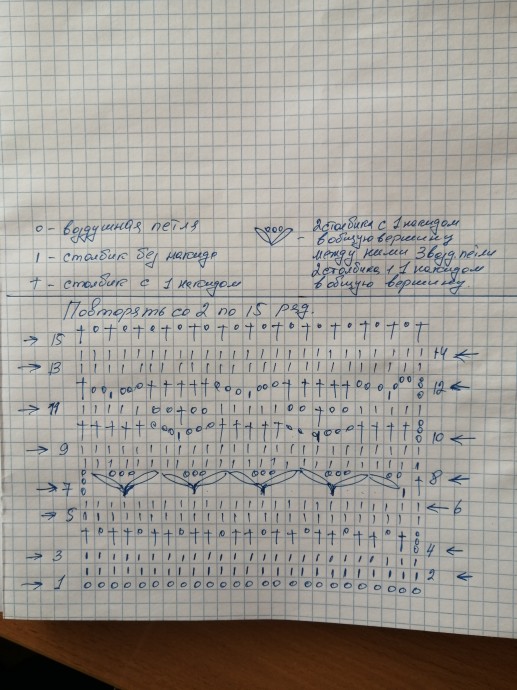 о - воздушная петля
2 столбика с 1 накидом
в общую вершину
ı - столбик без накида
между ними 3 возд. петли
2 столбика с 1 накидом
в общую вершину
† - столбик с 1 накидом
Повторять со 2 по 15 ряд.
→ 15
14 ←
→ 13
12 ←
→ 11
10 ←
→ 9
8 ←
→ 7
← 6
→ 5
4 ←
→ 3
2 ←
→ 1